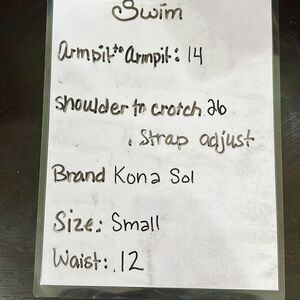 Swim
Armpit to Armpit: 14
Shoulder to crotch 26
. Strap adjust
Brand Kona Sol
Size: Small
Waist: 12